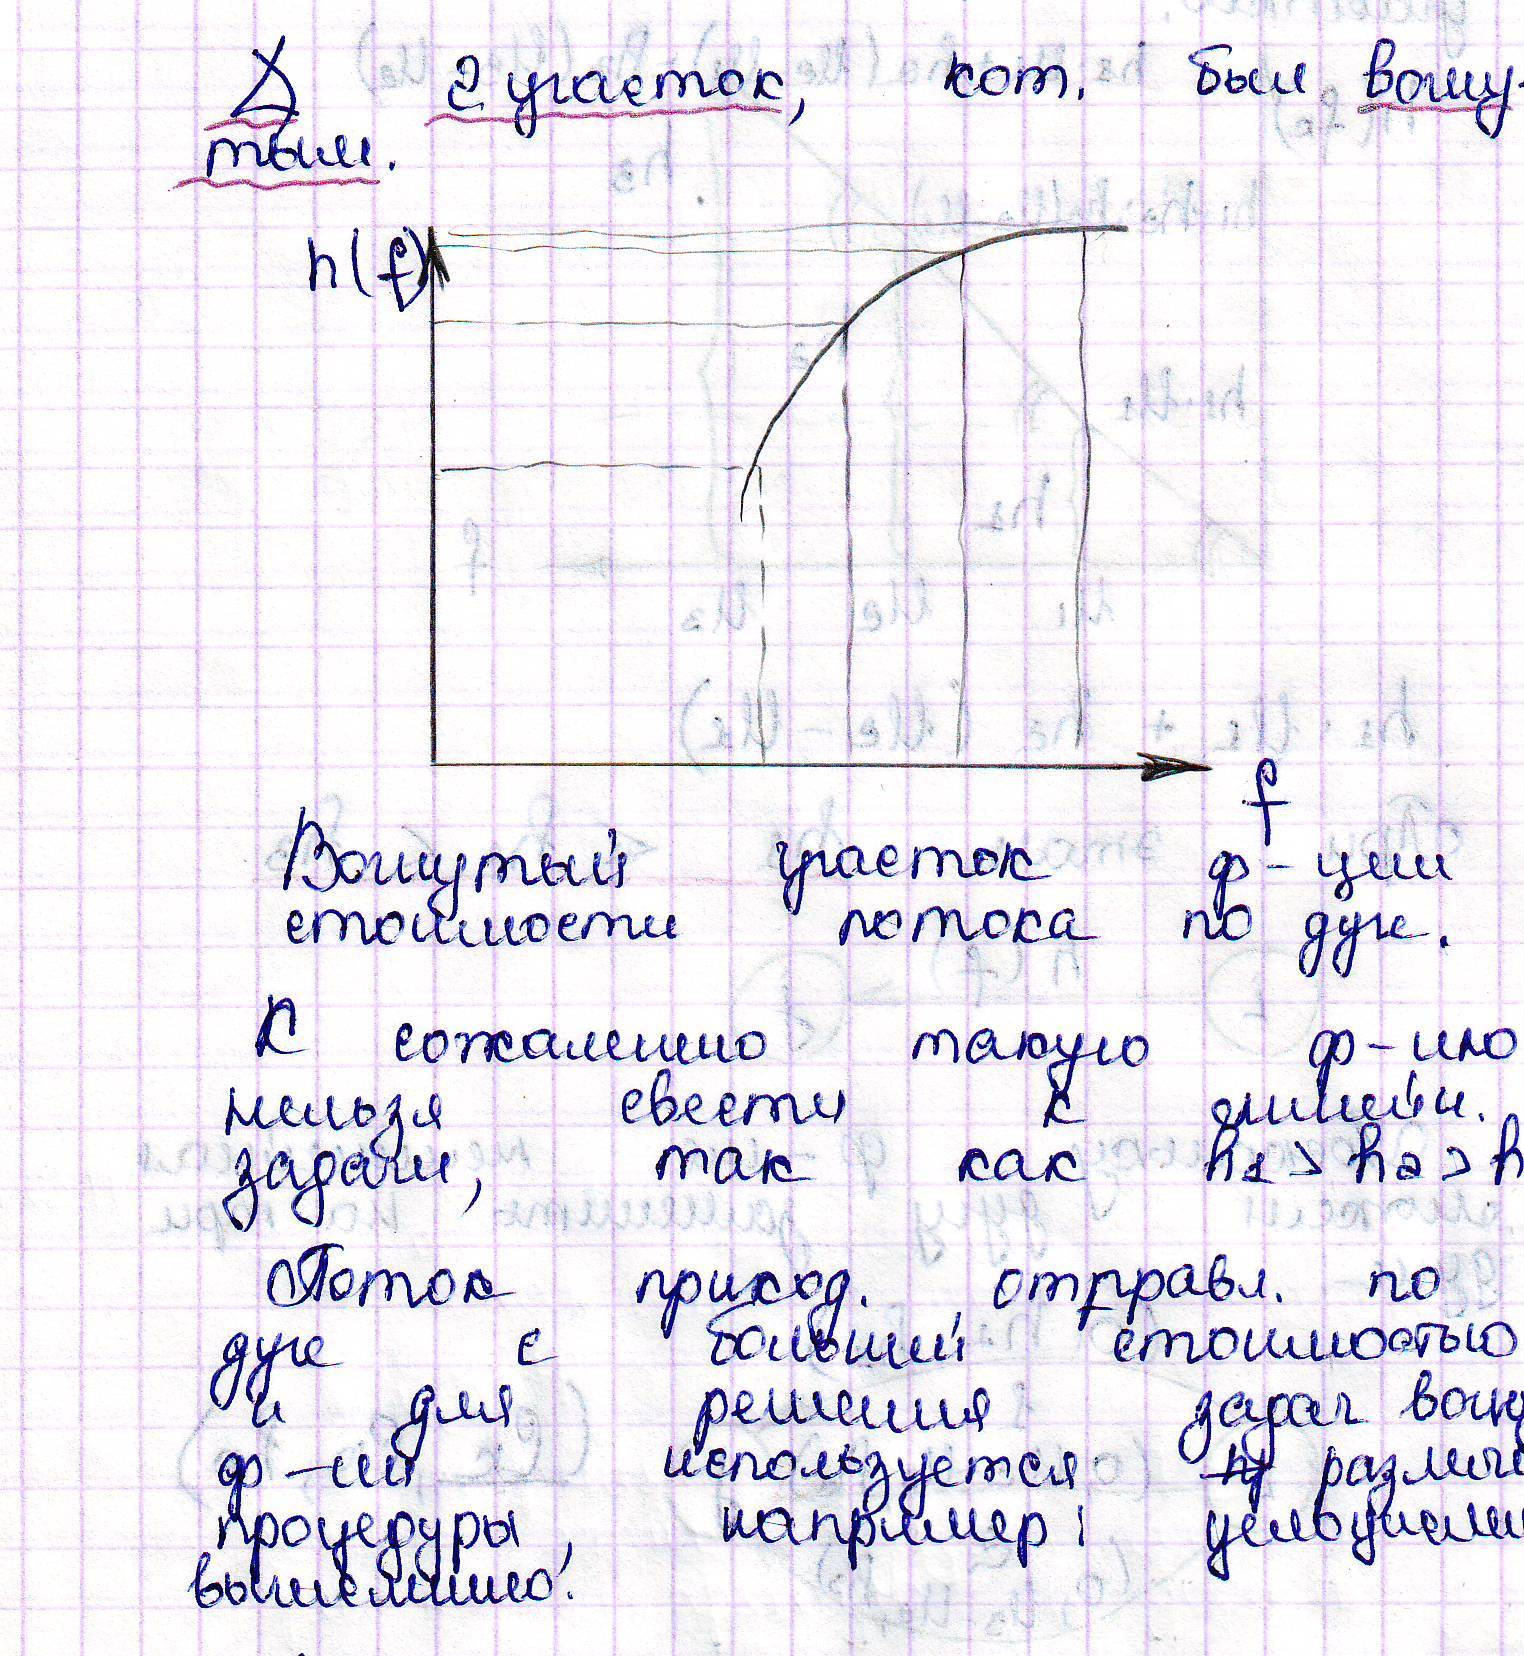 2 участок, кот. был вогну-
тым.
h(f)
f
Вогнутый участок ф-ции
стоимости потока по дуге.
К сожалению такую ф-цию
нельзя свести к линейн.
задачи, так как h1 > h2 > h
Поток приход. отправл. по
дуге с большей стоимостью
и для решения задач вогн
ф-ций используется различ
процедуры, например: целочислен
вычислению.